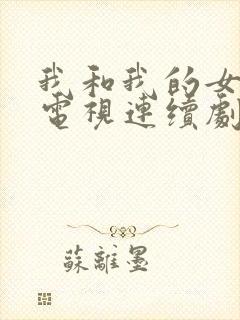 我和我的女
電視連續劇
蘇離墨